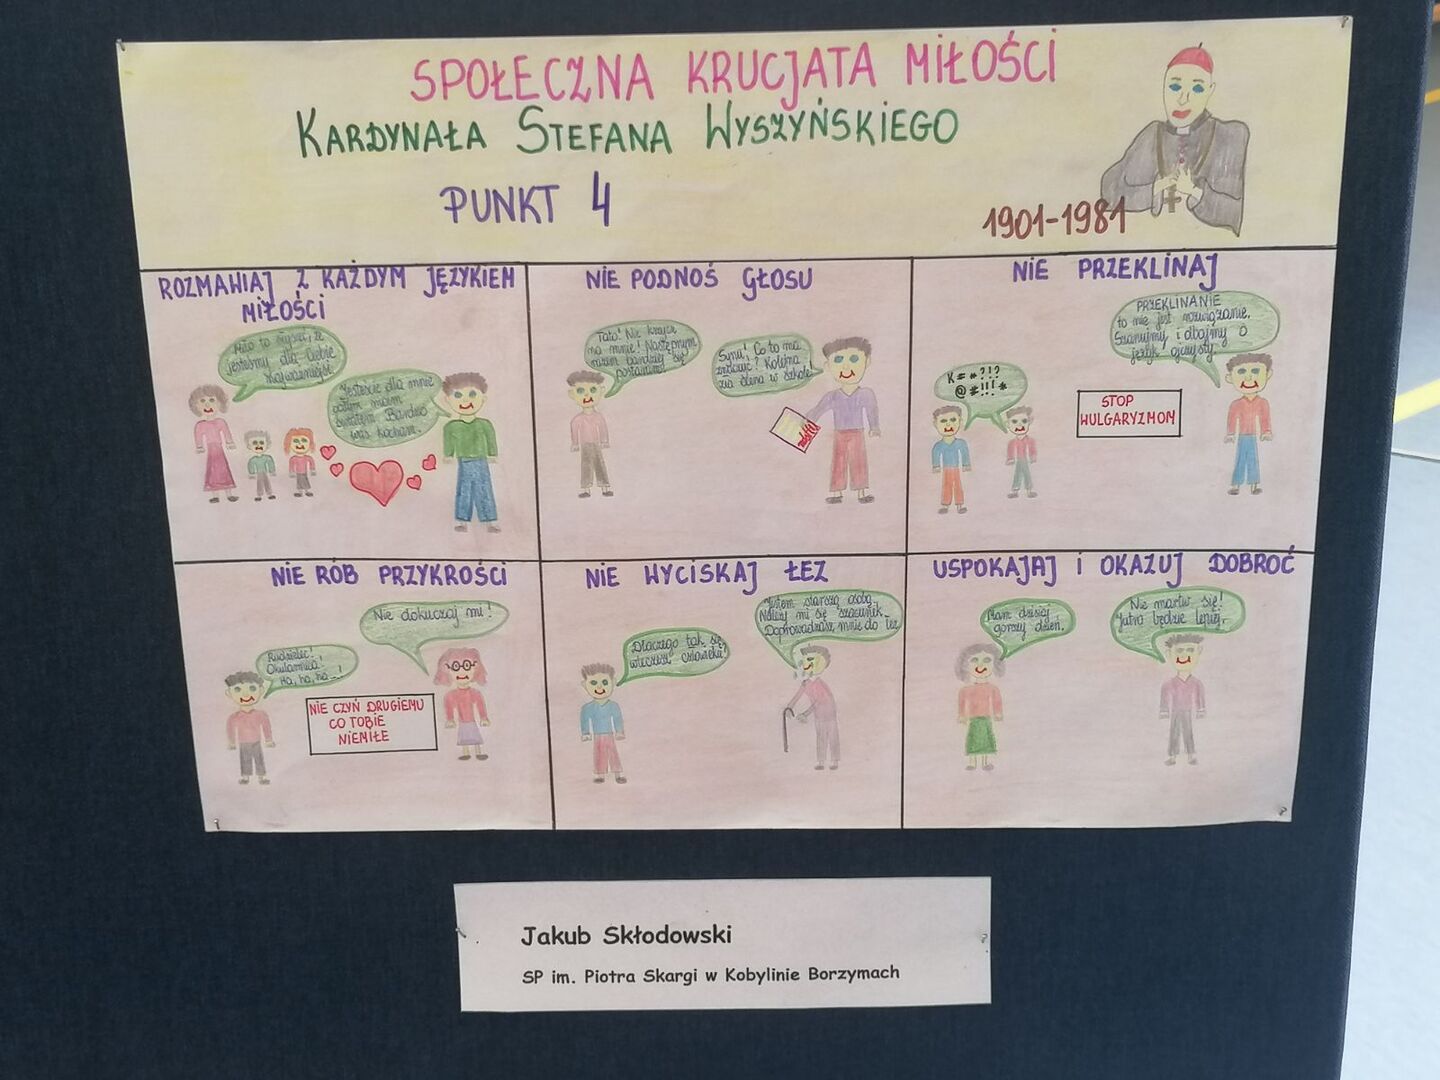 SPOŁECZNA KRUCJATA MIŁOŚCI
KARDYNAŁA STEFANA WYSZYŃSKIEGO
PUNKT 4
1901-1981
ROZMAWIAJ Z KAŻDYM JĘZYKIEM
MIŁOŚCI
Miło to słyszeć, że
jesteśmy dla Ciebie
najważniejsi.
Jesteście dla mnie
całym moim
światem. Bardzo
was kocham.
NIE PODNOŚ GŁOSU
Tato! Nie krzycz
na mnie! Następnym
razem bardziej się
postaram!
Synu! Co to ma
znaczyć? Kolejna
zła ocena w szkole!
NIE PRZEKLINAJ
K#*?!?
@#!!!*
STOP
WULGARYZMOM
PRZEKLINANIE
to nie jest rozwiązanie.
Szanujmy i dbajmy o
język ojczysty.
NIE RÓB PRZYKROŚCI
Rudzielec!
Okularnica!
Ha, ha, ha...!
NIE CZYŃ DRUGIEMU
CO TOBIE
NIEMIŁE
Nie dokuczaj mi!
NIE WYCISKAJ ŁEZ
Dlaczego tak się
wleczesz człowieku!
Jestem starszą osobą.
Należy mi się szacunek.
Doprowadzasz mnie do łez.
USPOKAJAJ I OKAZUJ DOBROĆ
Mam dzisiaj
gorszy dzień.
Nie martw się!
Jutro będzie lepiej.
Jakub Skłodowski
SP im. Piotra Skargi w Kobylinie Borzymach